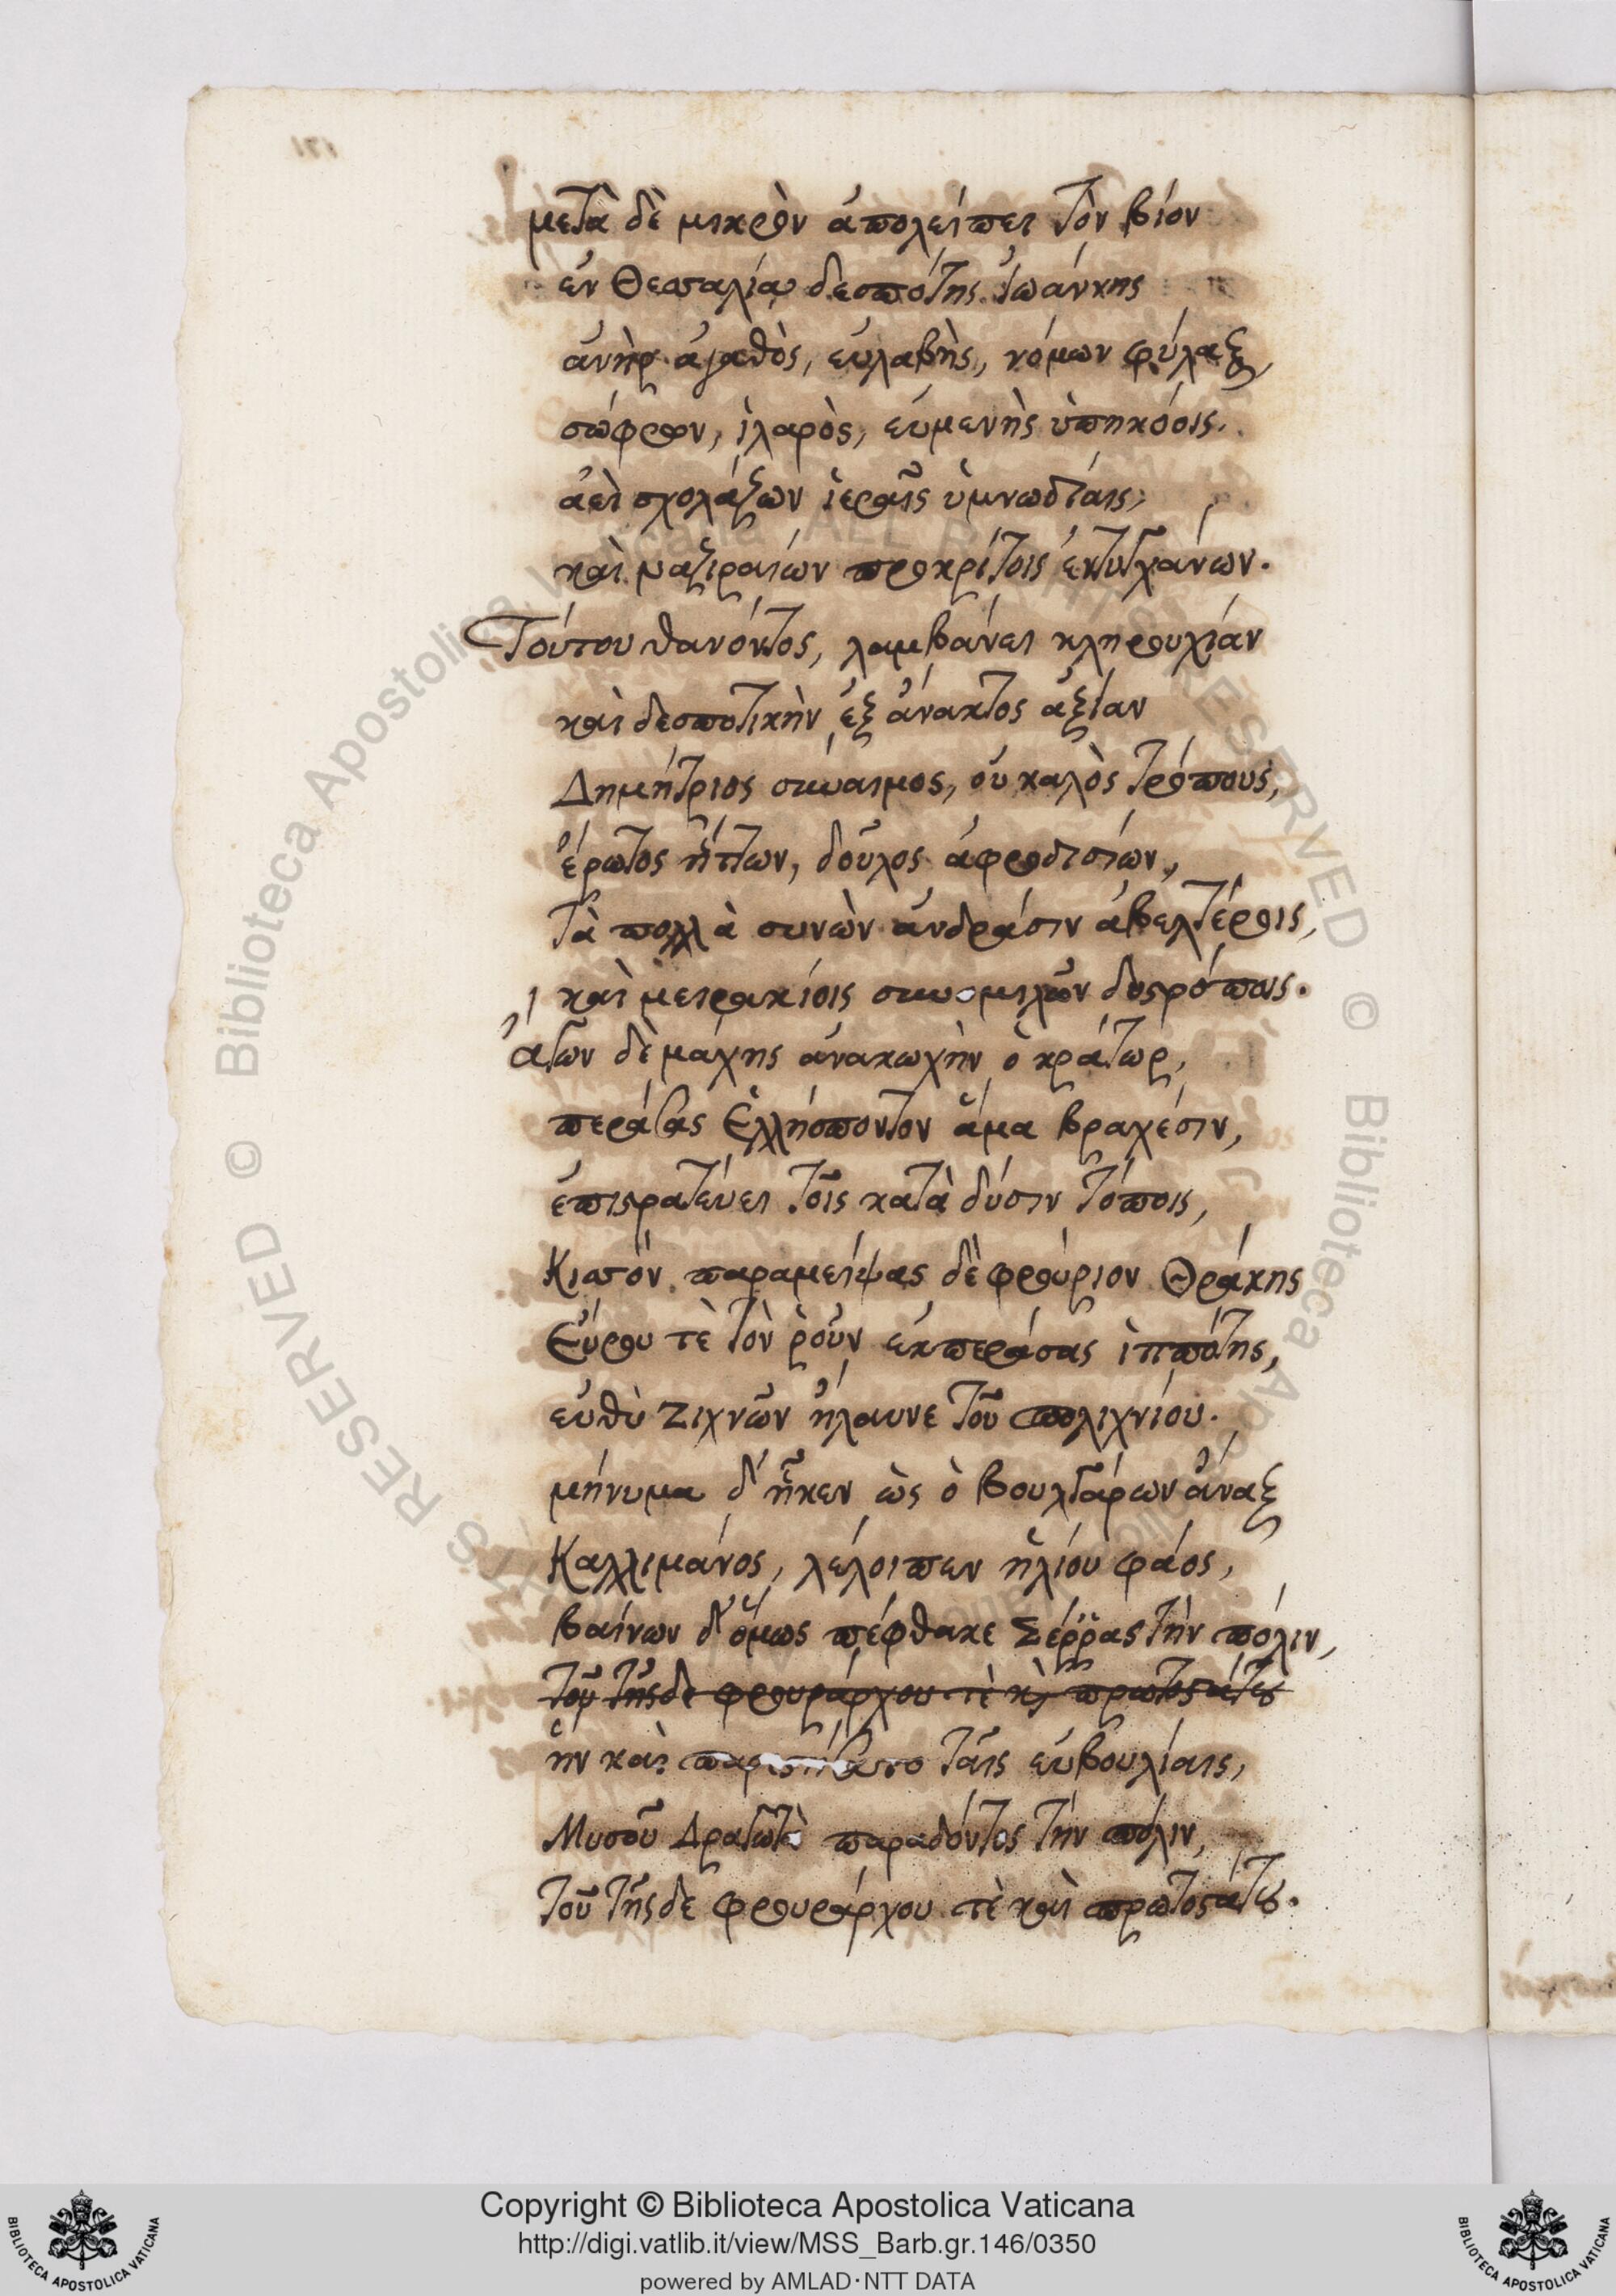 μετὰ δὲ μικρὸν ἀπολείπει τὸν βίον
ἐν Θεσσαλίᾳ δεσπότης ἰωάννης
ἀνὴρ ἀγαθὸς, εὐλαβὴς, νόμων φύλαξ,
σώφρων, ἱλαρὸς, εὐμενὴς ὑπηκόοις.
ἀεὶ σχολάζων ἱεραῖς ὑμνωδίαις,
καὶ ναζιραίων προκρίτοις ἐντυγχάνων.
Τούτου θανόντος, λαμβάνει κληρουχίαν
καὶ δεσποτικὴν ἐξ ἄνακτος ἀξίαν
Δημήτριος σύναιμος, οὐ καλὸς τρόπους,
ἔρωτος ἥττων, δοῦλος ἀφροδισίων,
τὰ πολλὰ συνὼν ἀνδράσιν ἀβελτέροις,
καὶ μειρακίοις συνομιλῶν δυστρόποις.
ἄγων δὲ μάχης ἀνακωχὴν ὁ κράτωρ,
περάσας Ἑλλήσποντον ἅμα βραχέσιν,
ἐπιστρατεύει τοῖς κατὰ δύσιν τόποις,
Κισσὸν παραμείψας δὲ φρούριον Θράκης
Εὔρου τὲ τὸν ῥοῦν ἐκπεράσας ἱππότης,
εὐθὺ Ζιχνῶν ἤλαυνε τοῦ πολιχνίου.
μήνυμα δ' ἧκεν ὡς ὁ Βουλγάρων ἄναξ
Καλλιμάνος, λέλοιπεν ἡλίου φάος,
βαίνων δ' ὅμως πέφθακε Σέῤῥας τὴν πόλιν,
τοῦ τῆσδε φρουράρχου τὲ κὶ πρωτοστάτου
ἣν καὶ παρεστήσατο ταῖς εὐβουλίαις,
Μυσοῦ Δραγωτὰ παραδόντος τὴν πόλιν,
τοῦ τῆσδε φρουράρχου τὲ καὶ πρωτοστάτου.
Copyright © Biblioteca Apostolica Vaticana
http://digi.vatlib.it/view/MSS_Barb.gr.146/0350
powered by AMLAD·NTT DATA